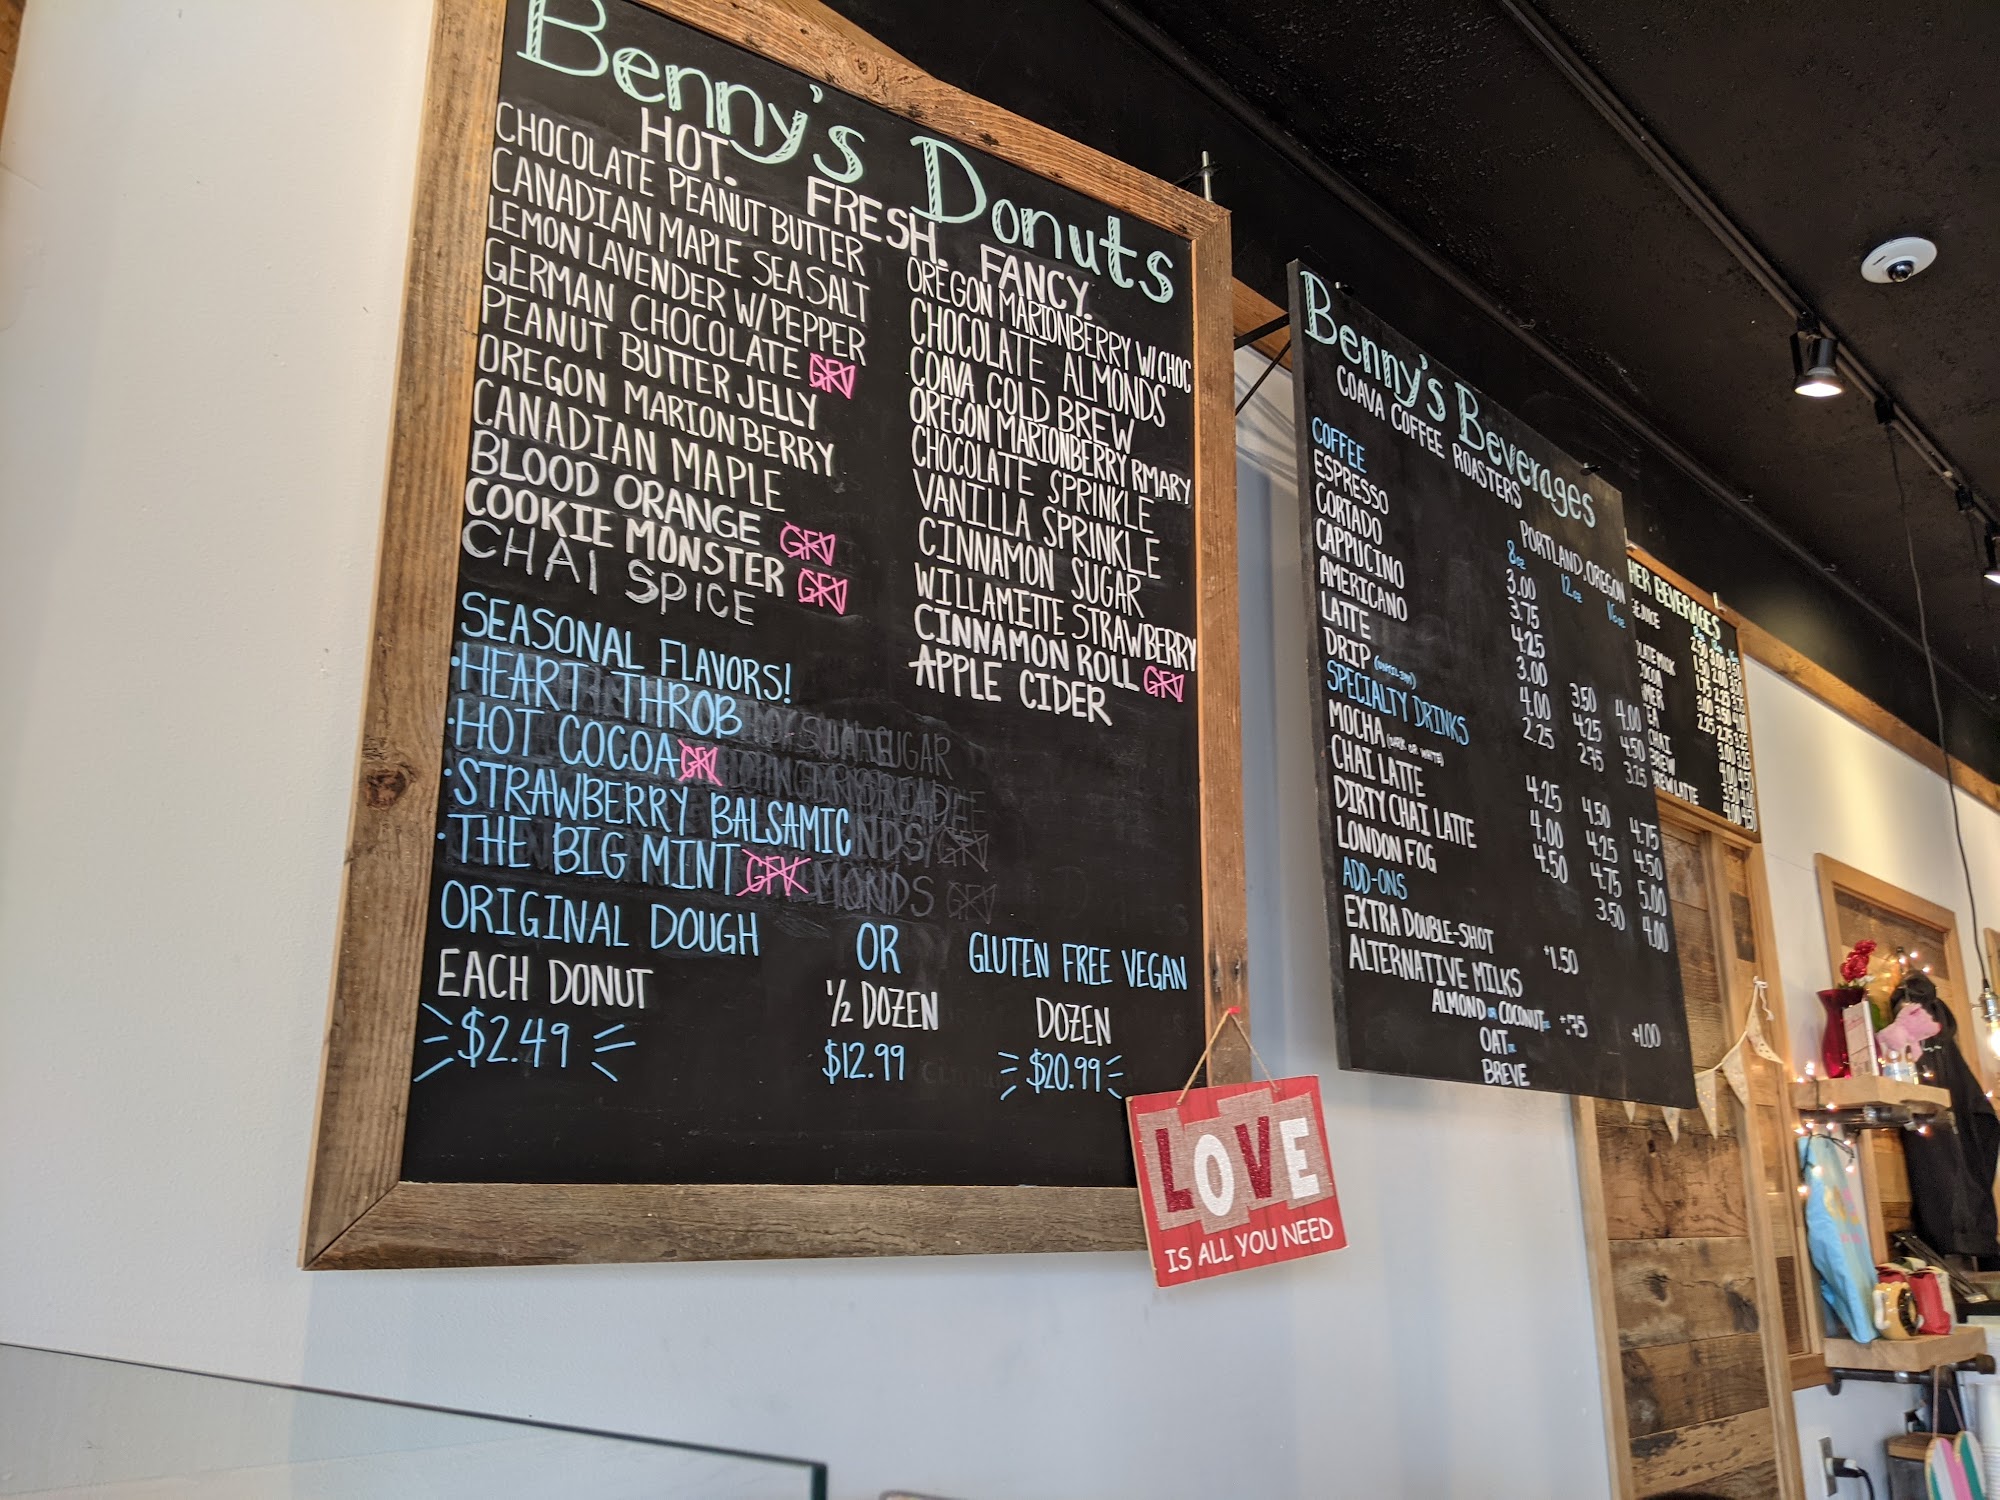 Benny's Donuts
HOT. FRESH. FANCY.
CHOCOLATE PEANUT BUTTER
CANADIAN MAPLE SEA SALT
LEMON LAVENDER W/PEPPER
GERMAN CHOCOLATE GFV
PEANUT BUTTER JELLY
OREGON MARIONBERRY
CANADIAN MAPLE
BLOOD ORANGE GFV
COOKIE MONSTER GFV
CHAI SPICE
OREGON MARIONBERRY W/CHOC
CHOCOLATE ALMONDS
COAVA COLD BREW
OREGON MARIONBERRY RMARY
CHOCOLATE SPRINKLE
VANILLA SPRINKLE
CINNAMON SUGAR
WILLAMETTE STRAWBERRY
CINNAMON ROLL GFV
APPLE CIDER
SEASONAL FLAVORS!
·HEART THROB
·HOT COCOA
·STRAWBERRY BALSAMIC
·THE BIG MINT
ORIGINAL DOUGH OR GLUTEN FREE VEGAN
EACH DONUT 1/2 DOZEN DOZEN
$2.49 $12.99 $20.99
LOVE
IS ALL YOU NEED
Benny's Beverages
COAVA COFFEE ROASTERS PORTLAND, OREGON
COFFEE 8oz 12oz 16oz
ESPRESSO 3.00
CORTADO 3.75
CAPPUCINO 4.25
AMERICANO 3.00 3.50 4.00
LATTE 4.00 4.25 4.50
DRIP 2.25 2.75 3.25
SPECIALTY DRINKS
MOCHA (DARK OR WHITE) 4.25 4.50 4.75
CHAI LATTE 4.00 4.25 4.50
DIRTY CHAI LATTE 4.50 4.75 5.00
LONDON FOG 3.50 4.00
ADD-ONS
EXTRA DOUBLE-SHOT +1.50
ALTERNATIVE MILKS
ALMOND OR COCONUT +.75 +1.00
OAT
BREVE
HER BEVERAGES
CHAI
BREW
BREW LATTE